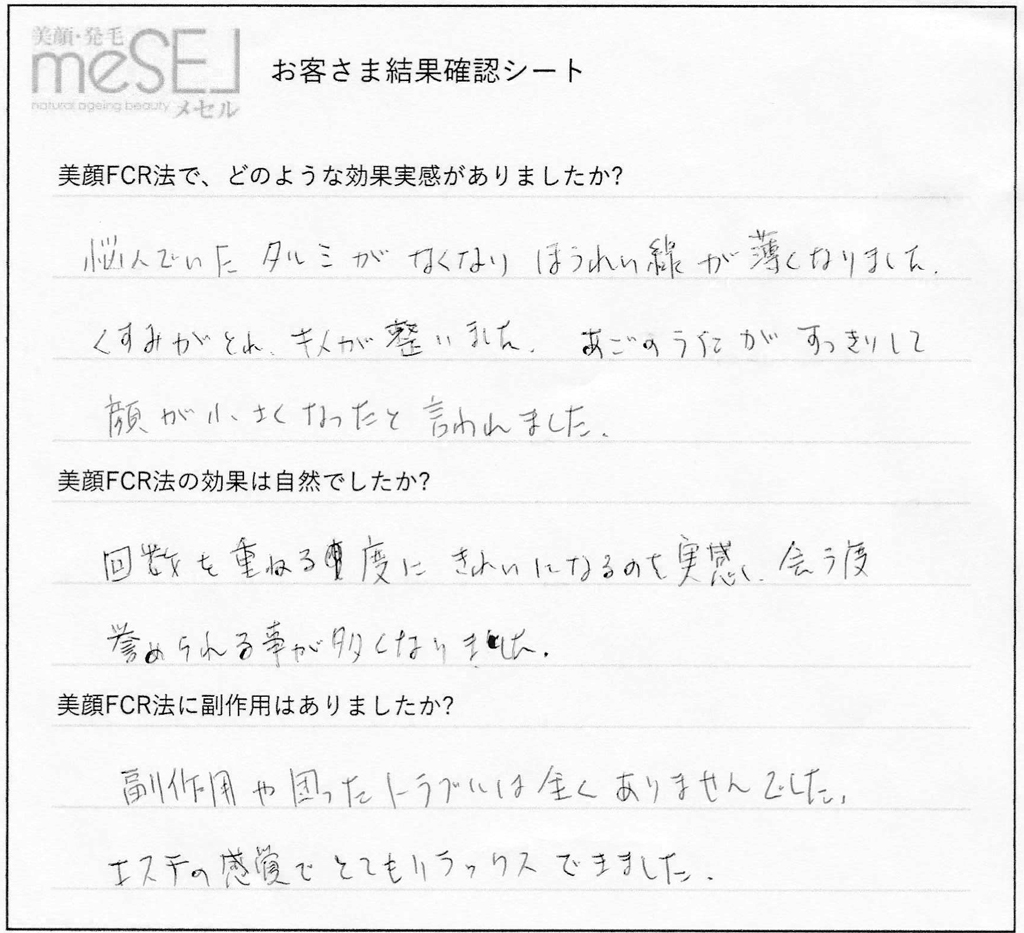 美顔・発毛
meSEL
natural ageing beauty メセル
お客さま結果確認シート
美顔FCR法で、どのような効果実感がありましたか?
悩んでいた タルミが なくなり ほうれい線が 薄くなりました。
くすみがとれ、キメが 整いました。 あごのラインが すっきりして
顔が小さくなったと 言われました。
美顔FCR法の効果は自然でしたか?
回数を重ねる度に きれいになるのを実感し、会う度
誉められる事が多くなりました。
美顔FCR法に副作用はありましたか?
副作用や困ったトラブルは全くありませんでした。
エステの感覚でとてもリラックスできました。